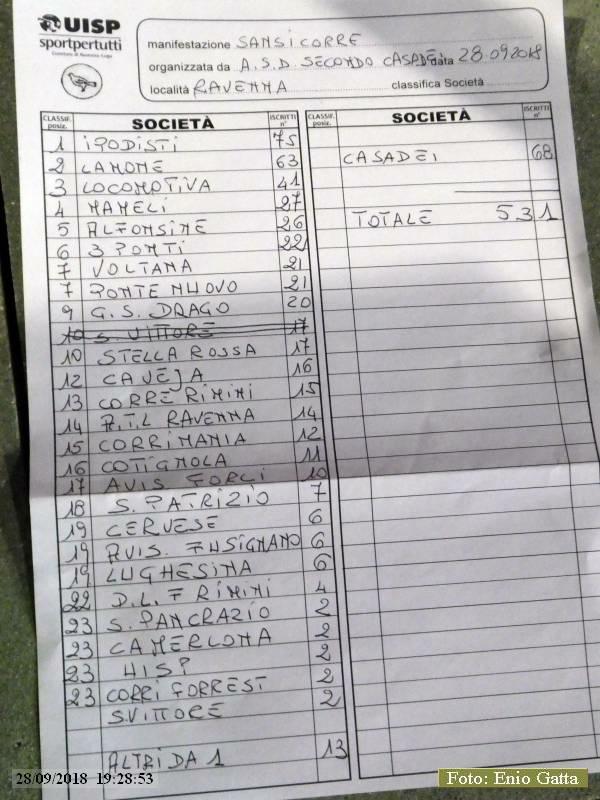 UISP
sportpertutti
manifestazione SANSICORRE
organizzata da A.S.D. SECONDO CASADEI data 28.09.2018
località RAVENNA classifica Società
CLASSIF. posiz. SOCIETÀ ISCRITTI n°
1 IPODISTI 75
2 LAMONE 63
3 LOCOMOTIVA 41
4 MAMELI 27
5 ALFONSINE 26
6 3 PONTI 22
7 VOLTANA 21
7 PONTE NUOVO 21
9 G.S. DRAGO 20
10 S. VITTORE 17
10 STELLA ROSSA 17
12 CAVEJA 16
13 CORRERIMINI 15
14 A.T.L RAVENNA 14
15 CORRIMANIA 12
16 COTIGNOLA 11
17 AVIS FORLI 10
18 S. PATRIZIO 7
19 CERVESE 6
19 AVIS. FUSIGNANO 6
19 LUGHESINA 6
22 D.L.F RIMINI 4
23 S. PANCRAZIO 2
23 CAMERLONA 2
23 UISP 2
23 CORRI FORREST 2
S.VITTORE 2
ALTRI DA 1 13
CLASSIF. posiz. SOCIETÀ ISCRITTI n°
CASADEI 68
TOTALE 531
28/09/2018 19:28:53
Foto: Enio Gatta